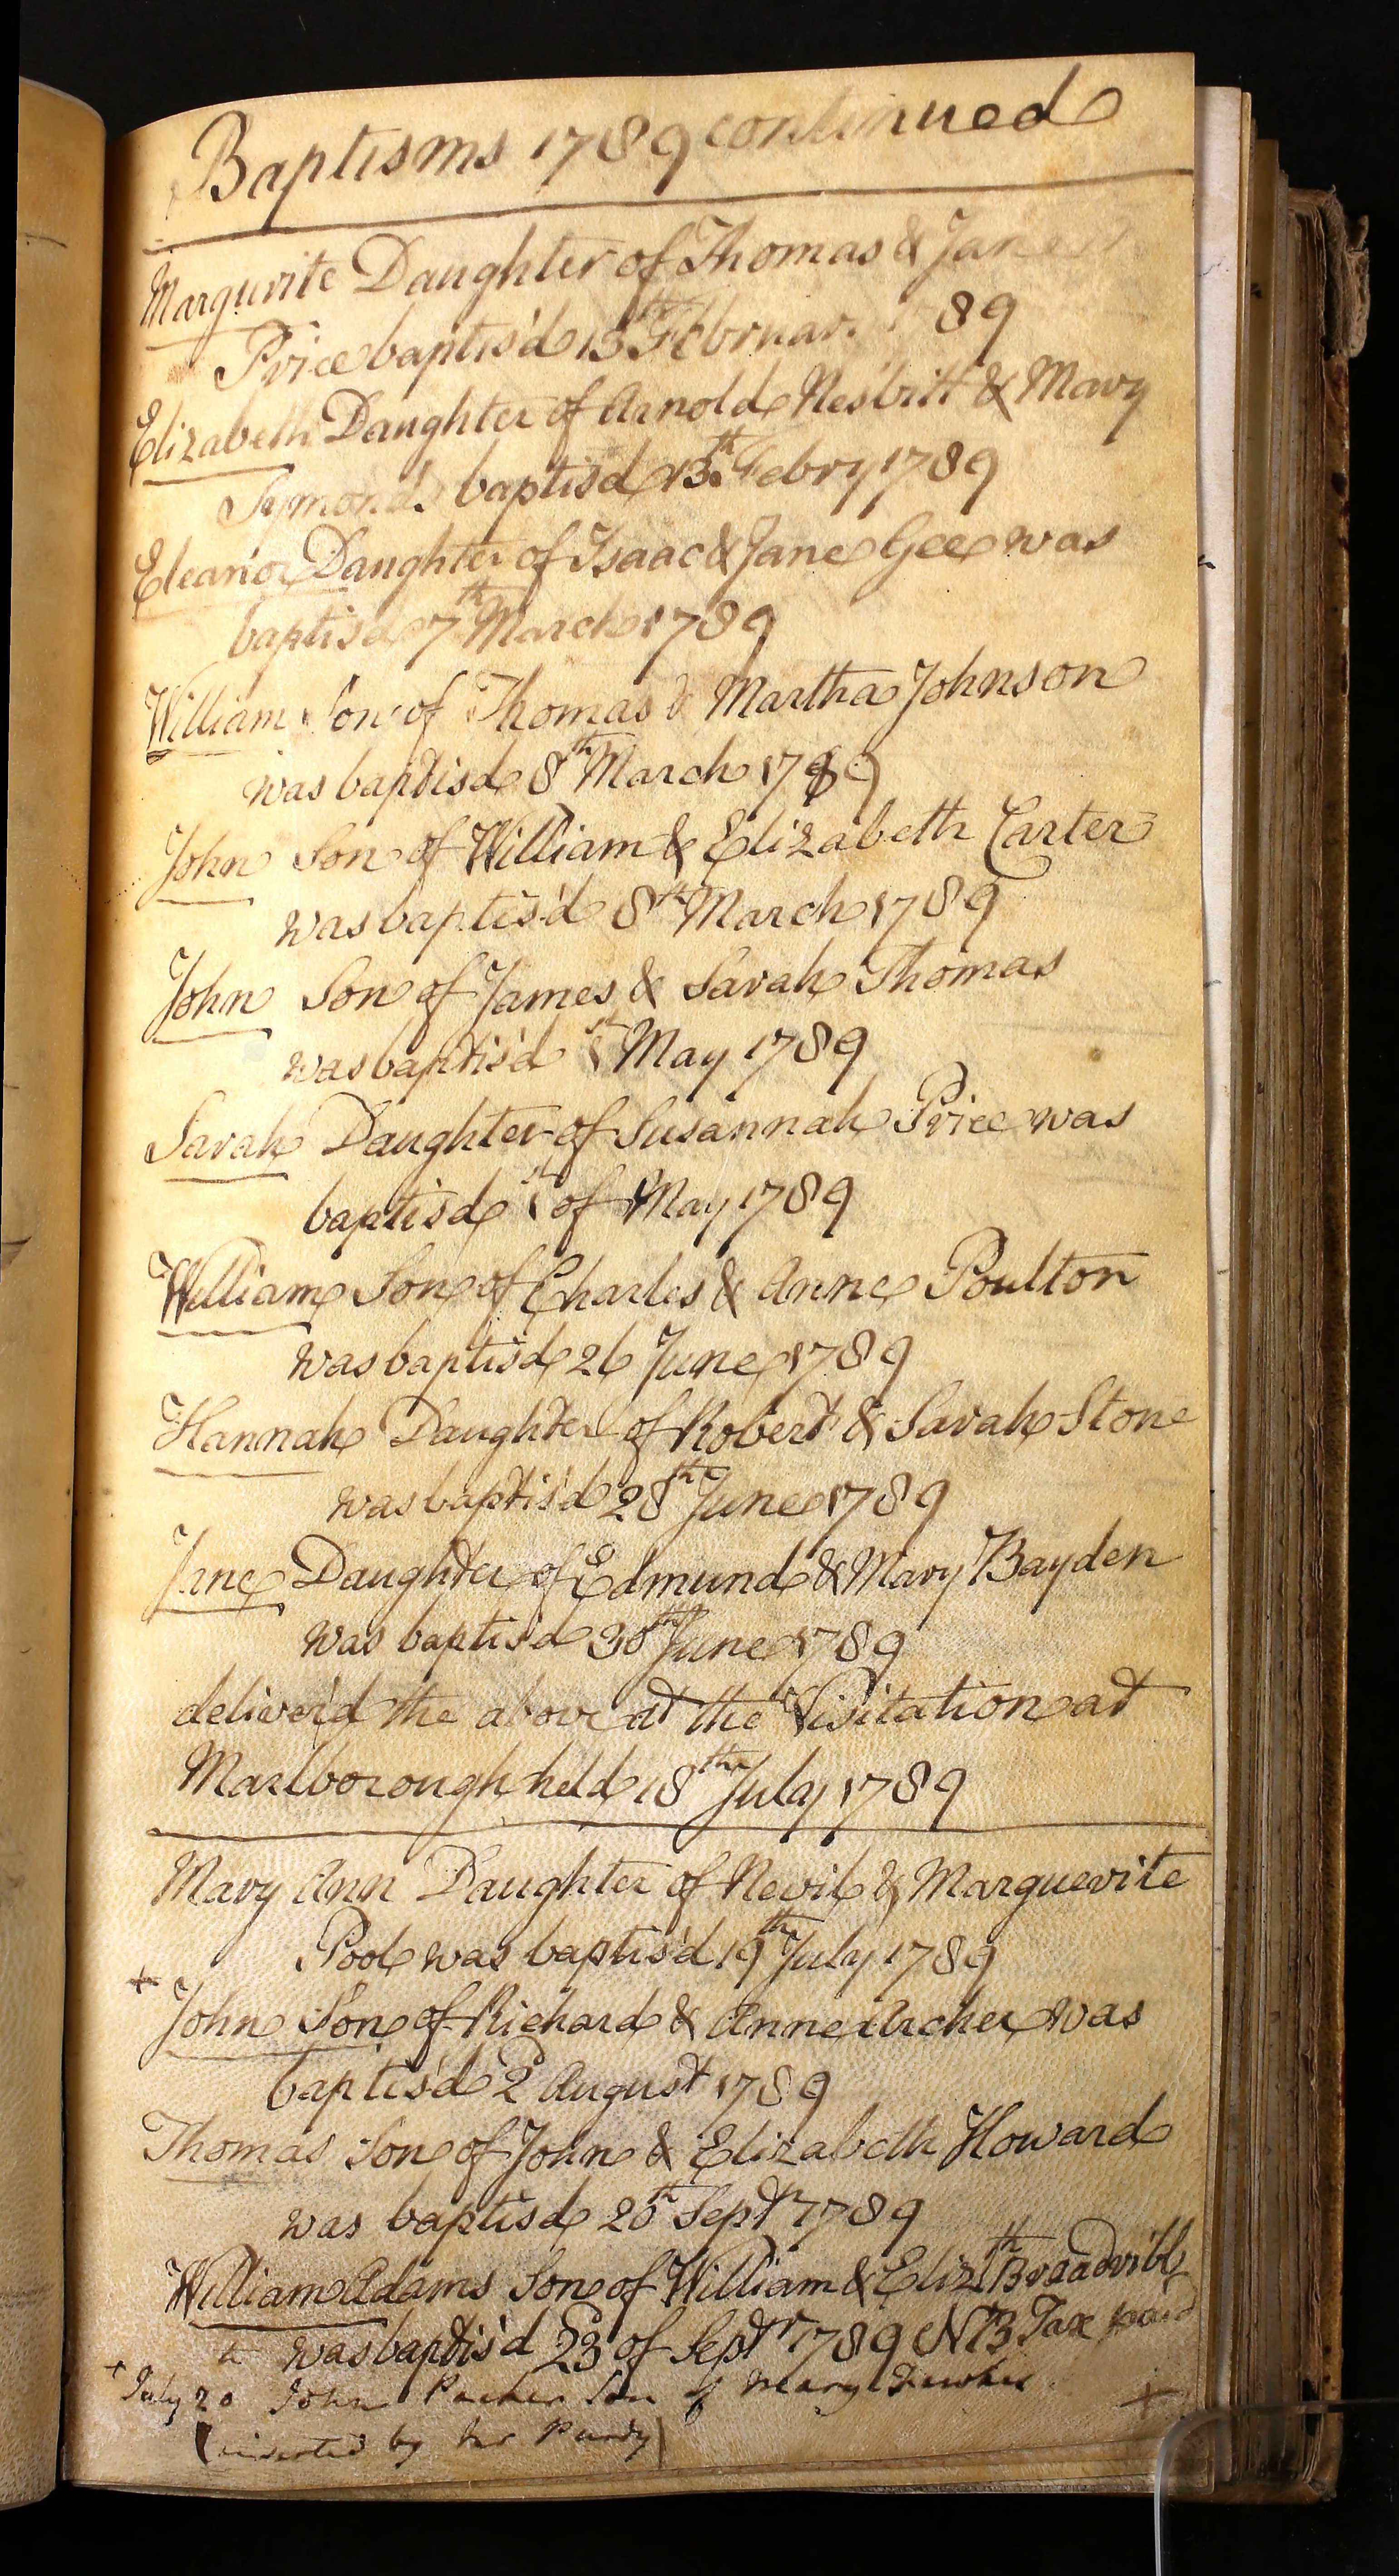 Baptisms 1789 continued
Marguerite Daughter of Thomas & Jane
Price baptis'd 13th Februar. 89
Elizabeth Daughter of Arnold Nesbitt & Mary
Symonds baptis'd 13th Febry 1789
Eleanor Daughter of Isaac & Jane Gee was
baptis'd 7th March 1789
William Son of Thomas & Martha Johnson
was baptis'd 8th March 1789
John Son of William & Elizabeth Carter
was baptis'd 8th March 1789
John Son of James & Sarah Thomas
was baptis'd May 1789
Sarah Daughter of Susannah Price was
baptis'd of May 1789
William Son of Charles & Anne Poulton
was baptis'd 26 June 1789
Hannah Daughter of Robert & Sarah Stone
was baptis'd 28th June 1789
Jane Daughter of Edmund & Mary Bayden
was baptis'd 30th June 1789
deliver'd the above at the Visitation at
Marlborough held 18th July 1789
Mary Ann Daughter of Nevil & Marguerite
Pool was baptis'd 19th July 1789
+ John Son of Richard & Anne Archer was
baptis'd 2d August 1789
Thomas Son of John & Elizabeth Howard
was baptis'd 20th Septr 1789
William Adams Son of William & Elizth
was baptis'd 23 of Septr 1789 NB Tax paid
+ July 20 John Son of Mary +
(inserted by Mr Purdy)